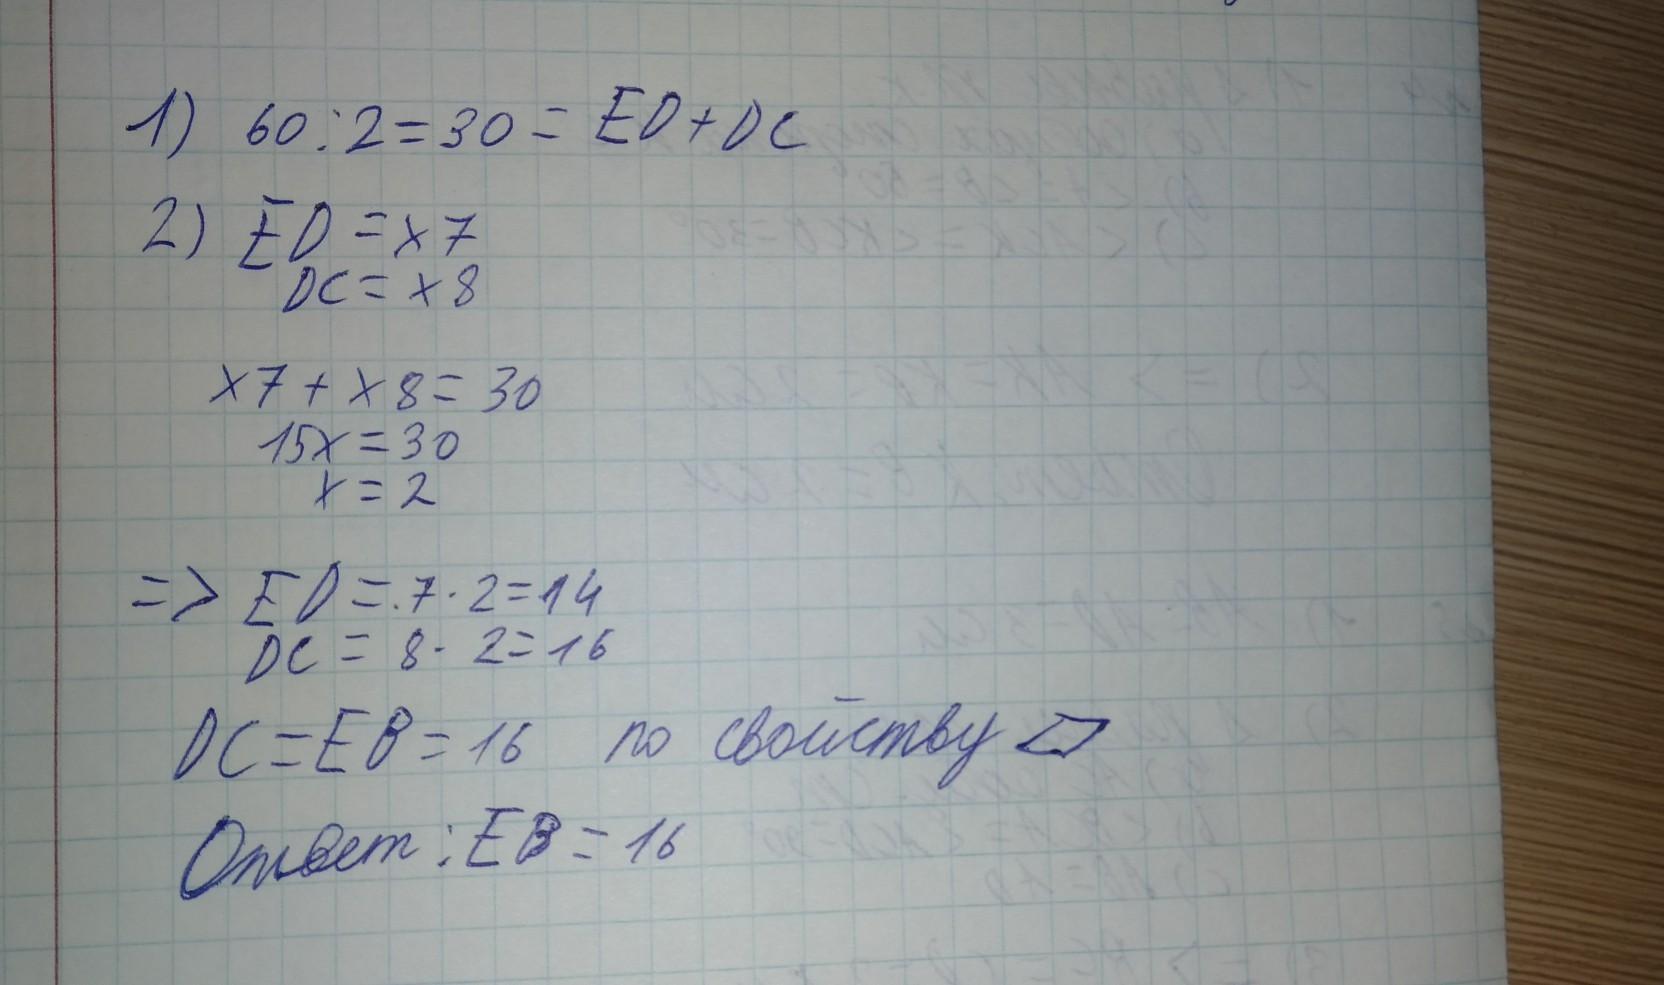 1) 60:2=30= ED+DC
2) ED=x7
DC=x8
x7+x8=30
15x=30
x=2
=> ED=.7·2=14
DC=8·2=16
DC=EB=16 по свойству ▱
Ответ: EB=16